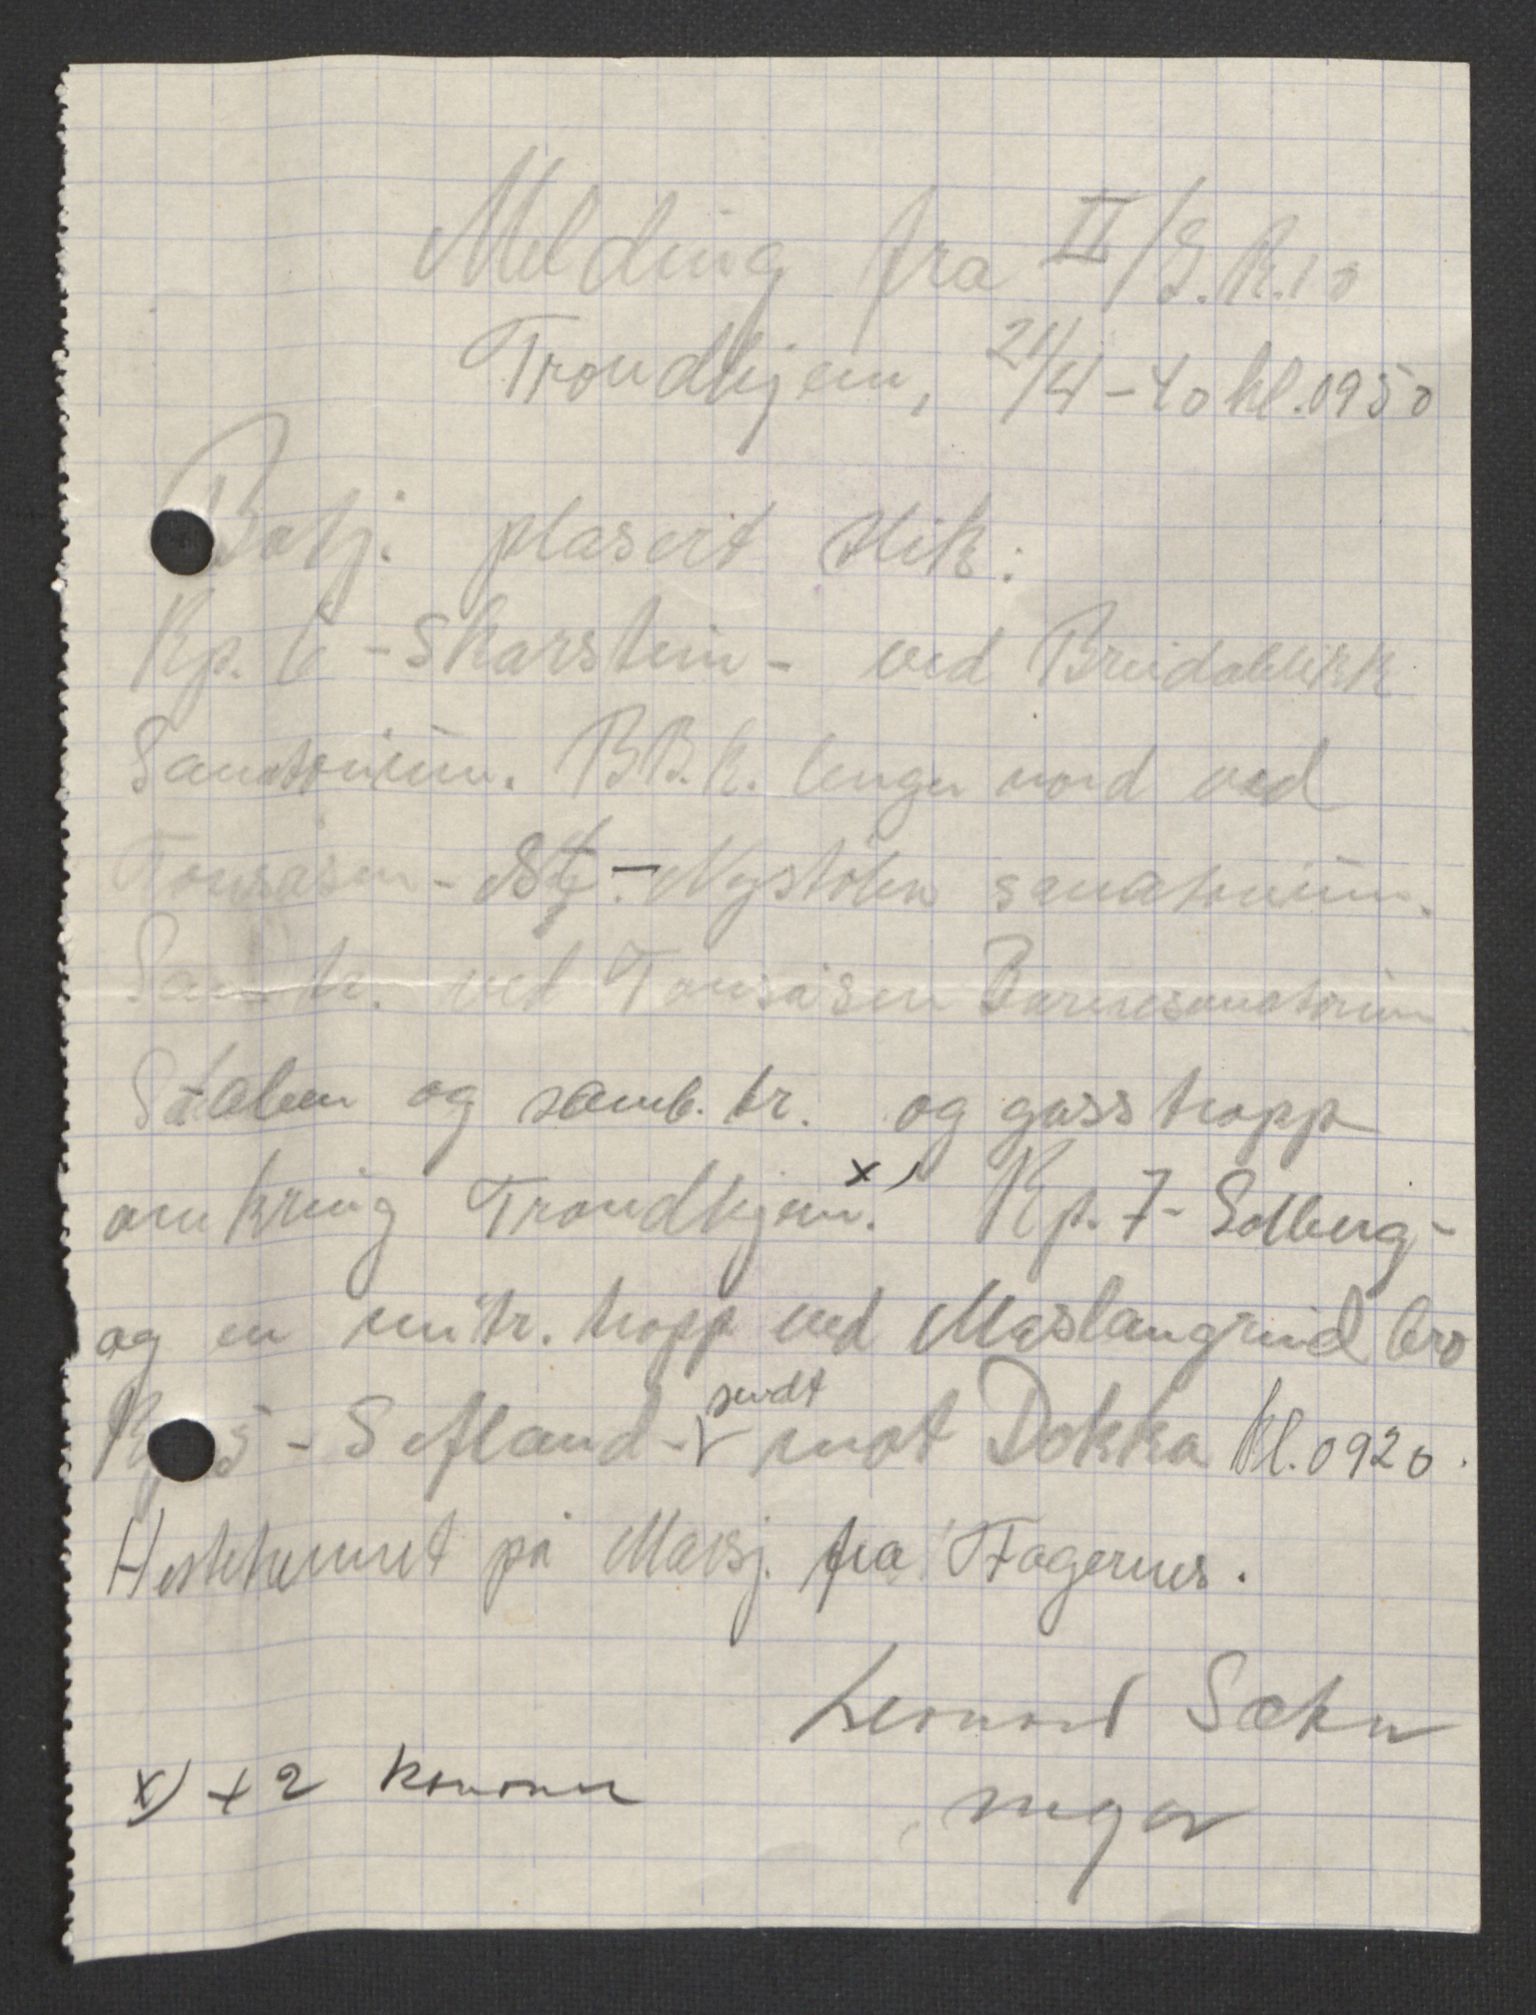 Melding fra II/I.R.10
Trondhjem, 21/4-40 kl. 0950
Batj. plasert slik:
Kp. 6 - Skarstein - ved Breidablikk
Sanatorium. BB.k. lenger nord ved
Tonsåsen - St. - Nystölen sanatorium.
San. tr. ved Tonsåsen Barnesanatorium
Staben og samb. tr. og gasstropp
omkring Trondhjem. x) Kp. 7 - Solberg -
og en mitr. tropp ved Maslangrud bro
Kp. 5 - Sefland - sendt mot Dokka kl. 0920.
Hestekennet på Marsj. fra Fagernes.
Leonard Sæhn
major
x) + 2 kanoner